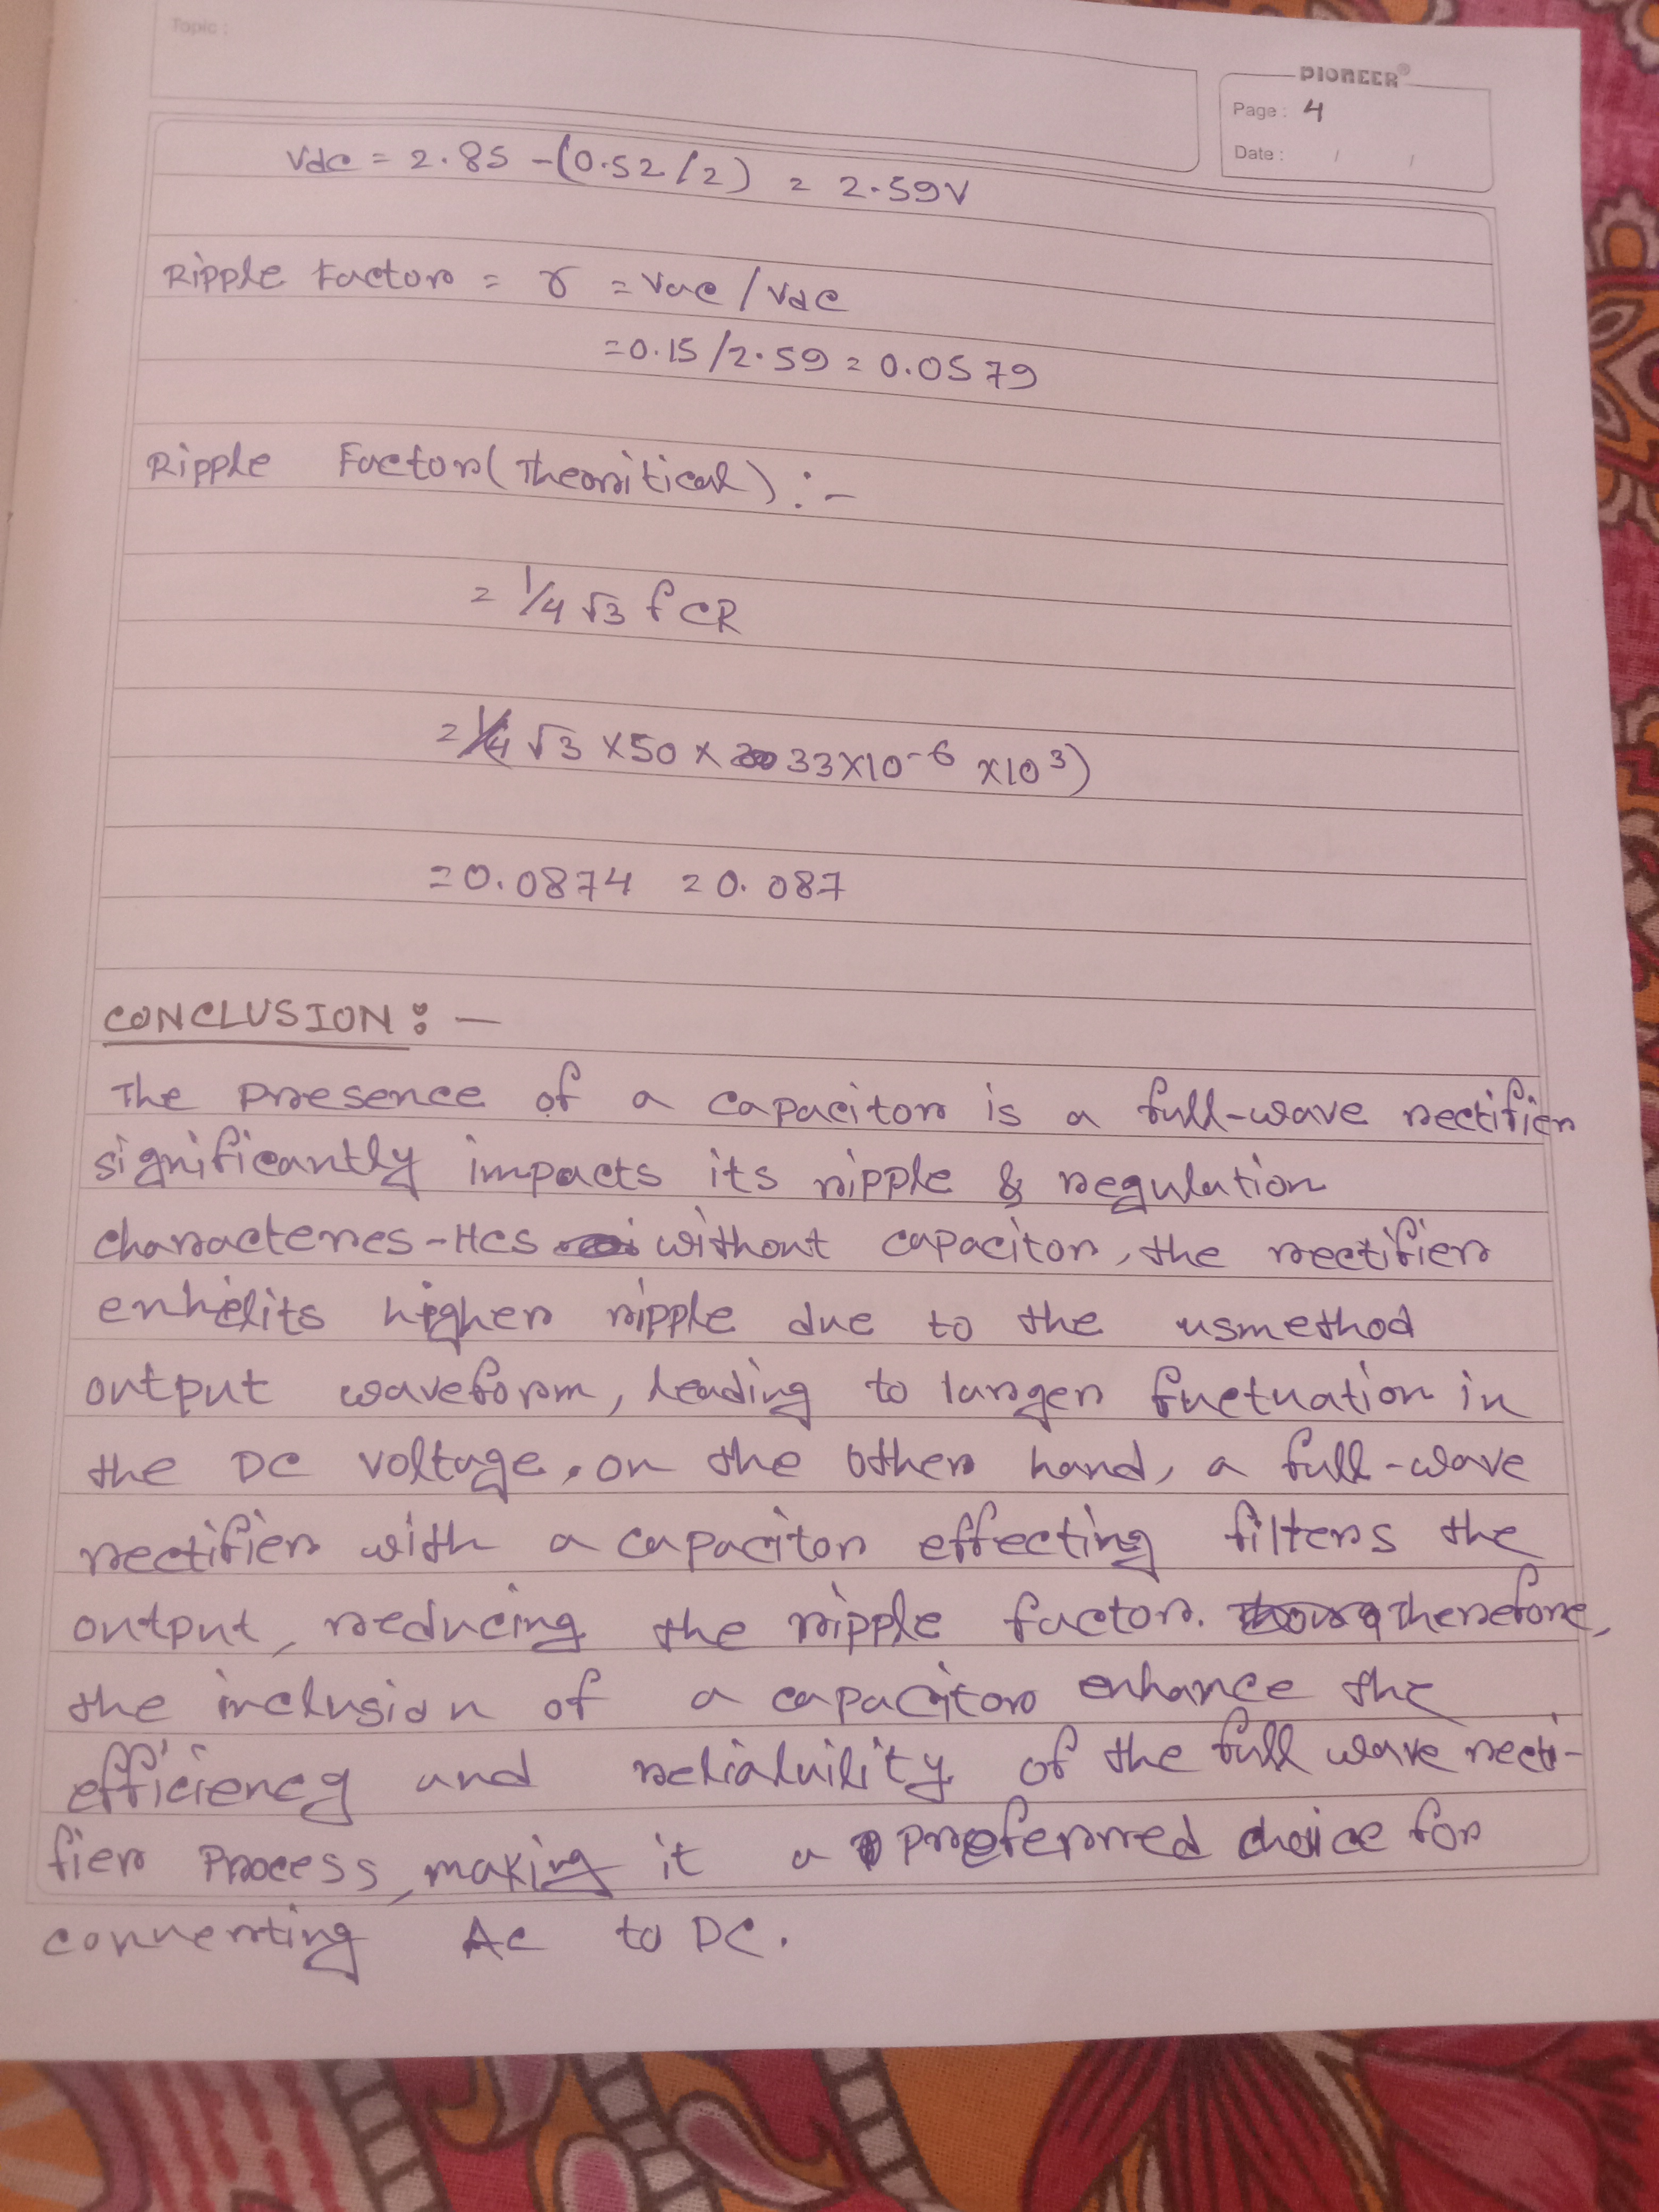 Topic :
PIONEER®
Page : 4
Date : / /
Vdc = 2.85 - (0.52/2) = 2.59V
Ripple Factor = γ = Vac / Vdc
= 0.15/2.59 = 0.0579
Ripple Factor (Theoritical) :-
= 1/4 √3 f CR
= 1/4 √3 ×50 × 33×10⁻⁶ ×10³)
= 0.0874 = 0.087
CONCLUSION : —
The presence of a capacitor is a full-wave rectifier
significantly impacts its ripple & regulation
characteres-tics without capacitor, the rectifier
enhelits higher ripple due to the usmethod
output waveform, leading to larger fuctuation in
the DC voltage. on the other hand, a full-wave
rectifier with a capacitor effecting filters the
output, reducing the ripple factor. Therefore,
the inclusion of a capacitor enhance the
efficiency and relialuility of the full wave recti-
fier process, making it a preferred choice for
converting AC to DC.